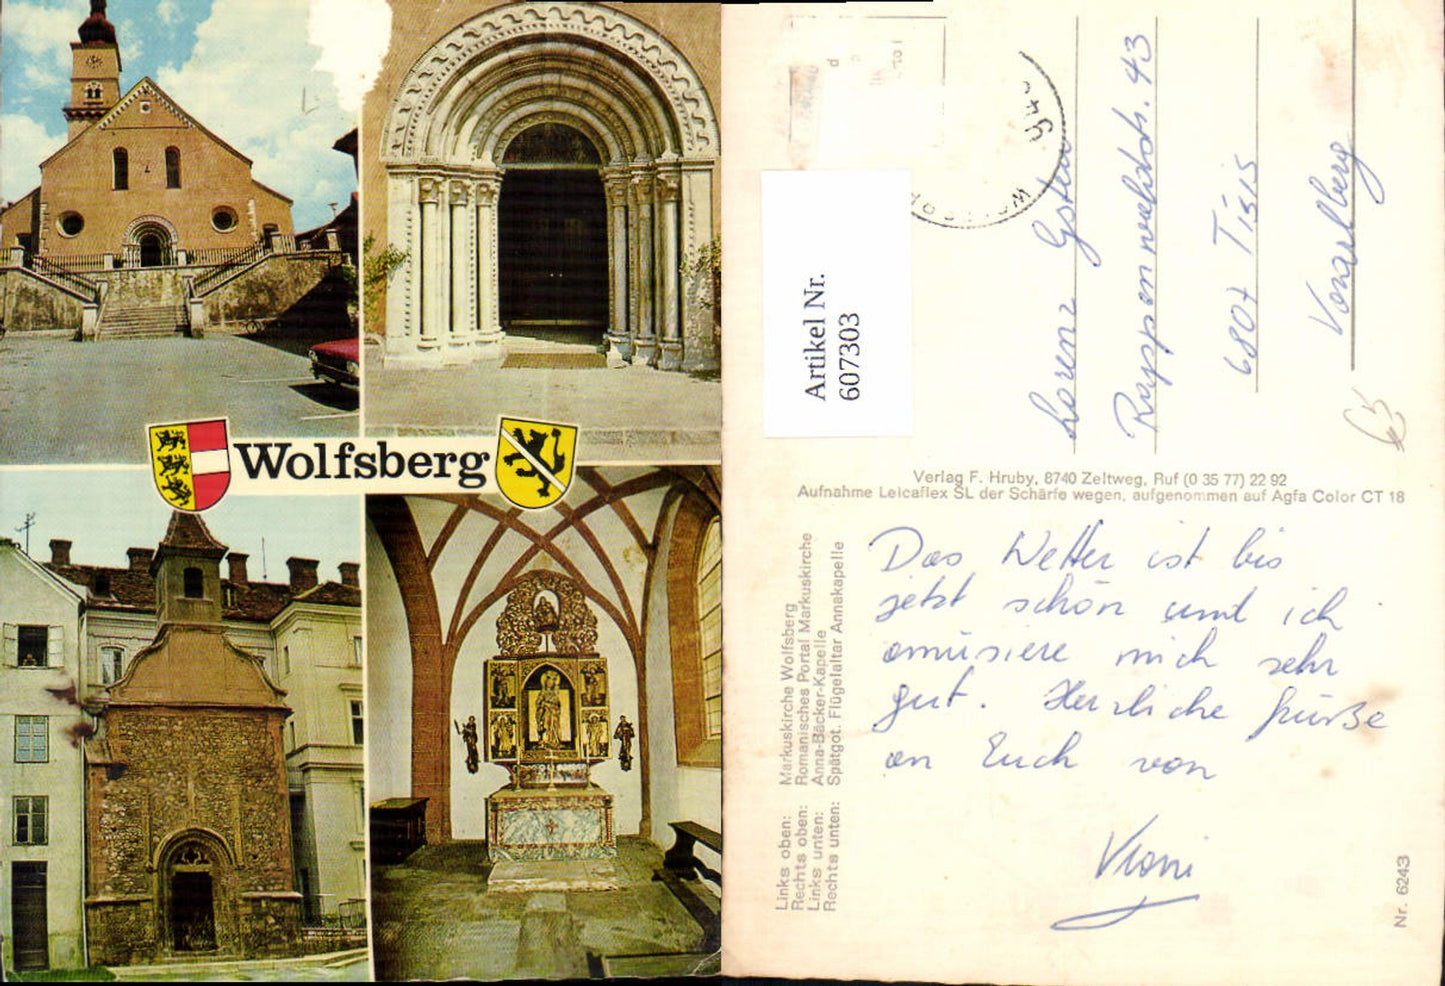 Wolfsberg
Artikel Nr.
607303
Lorenz
Rappenwaldstr. 43
6807 Tisis
Vorarlberg
Verlag F. Hruby, 8740 Zeltweg, Ruf (0 35 77) 22 92
Aufnahme Leicaflex SL der Schärfe wegen, aufgenommen auf Agfa Color CT 18
Das Wetter ist bis
jetzt schön und ich
amüsiere mich sehr
gut. Herzliche Grüße
an Euch von
Vroni
Links oben: Markuskirche Wolfsberg
Rechts oben: Romanisches Portal Markuskirche
Links unten: Anna-Bäcker-Kapelle
Rechts unten: Spätgot. Flügelaltar Annakapelle
Nr. 6243